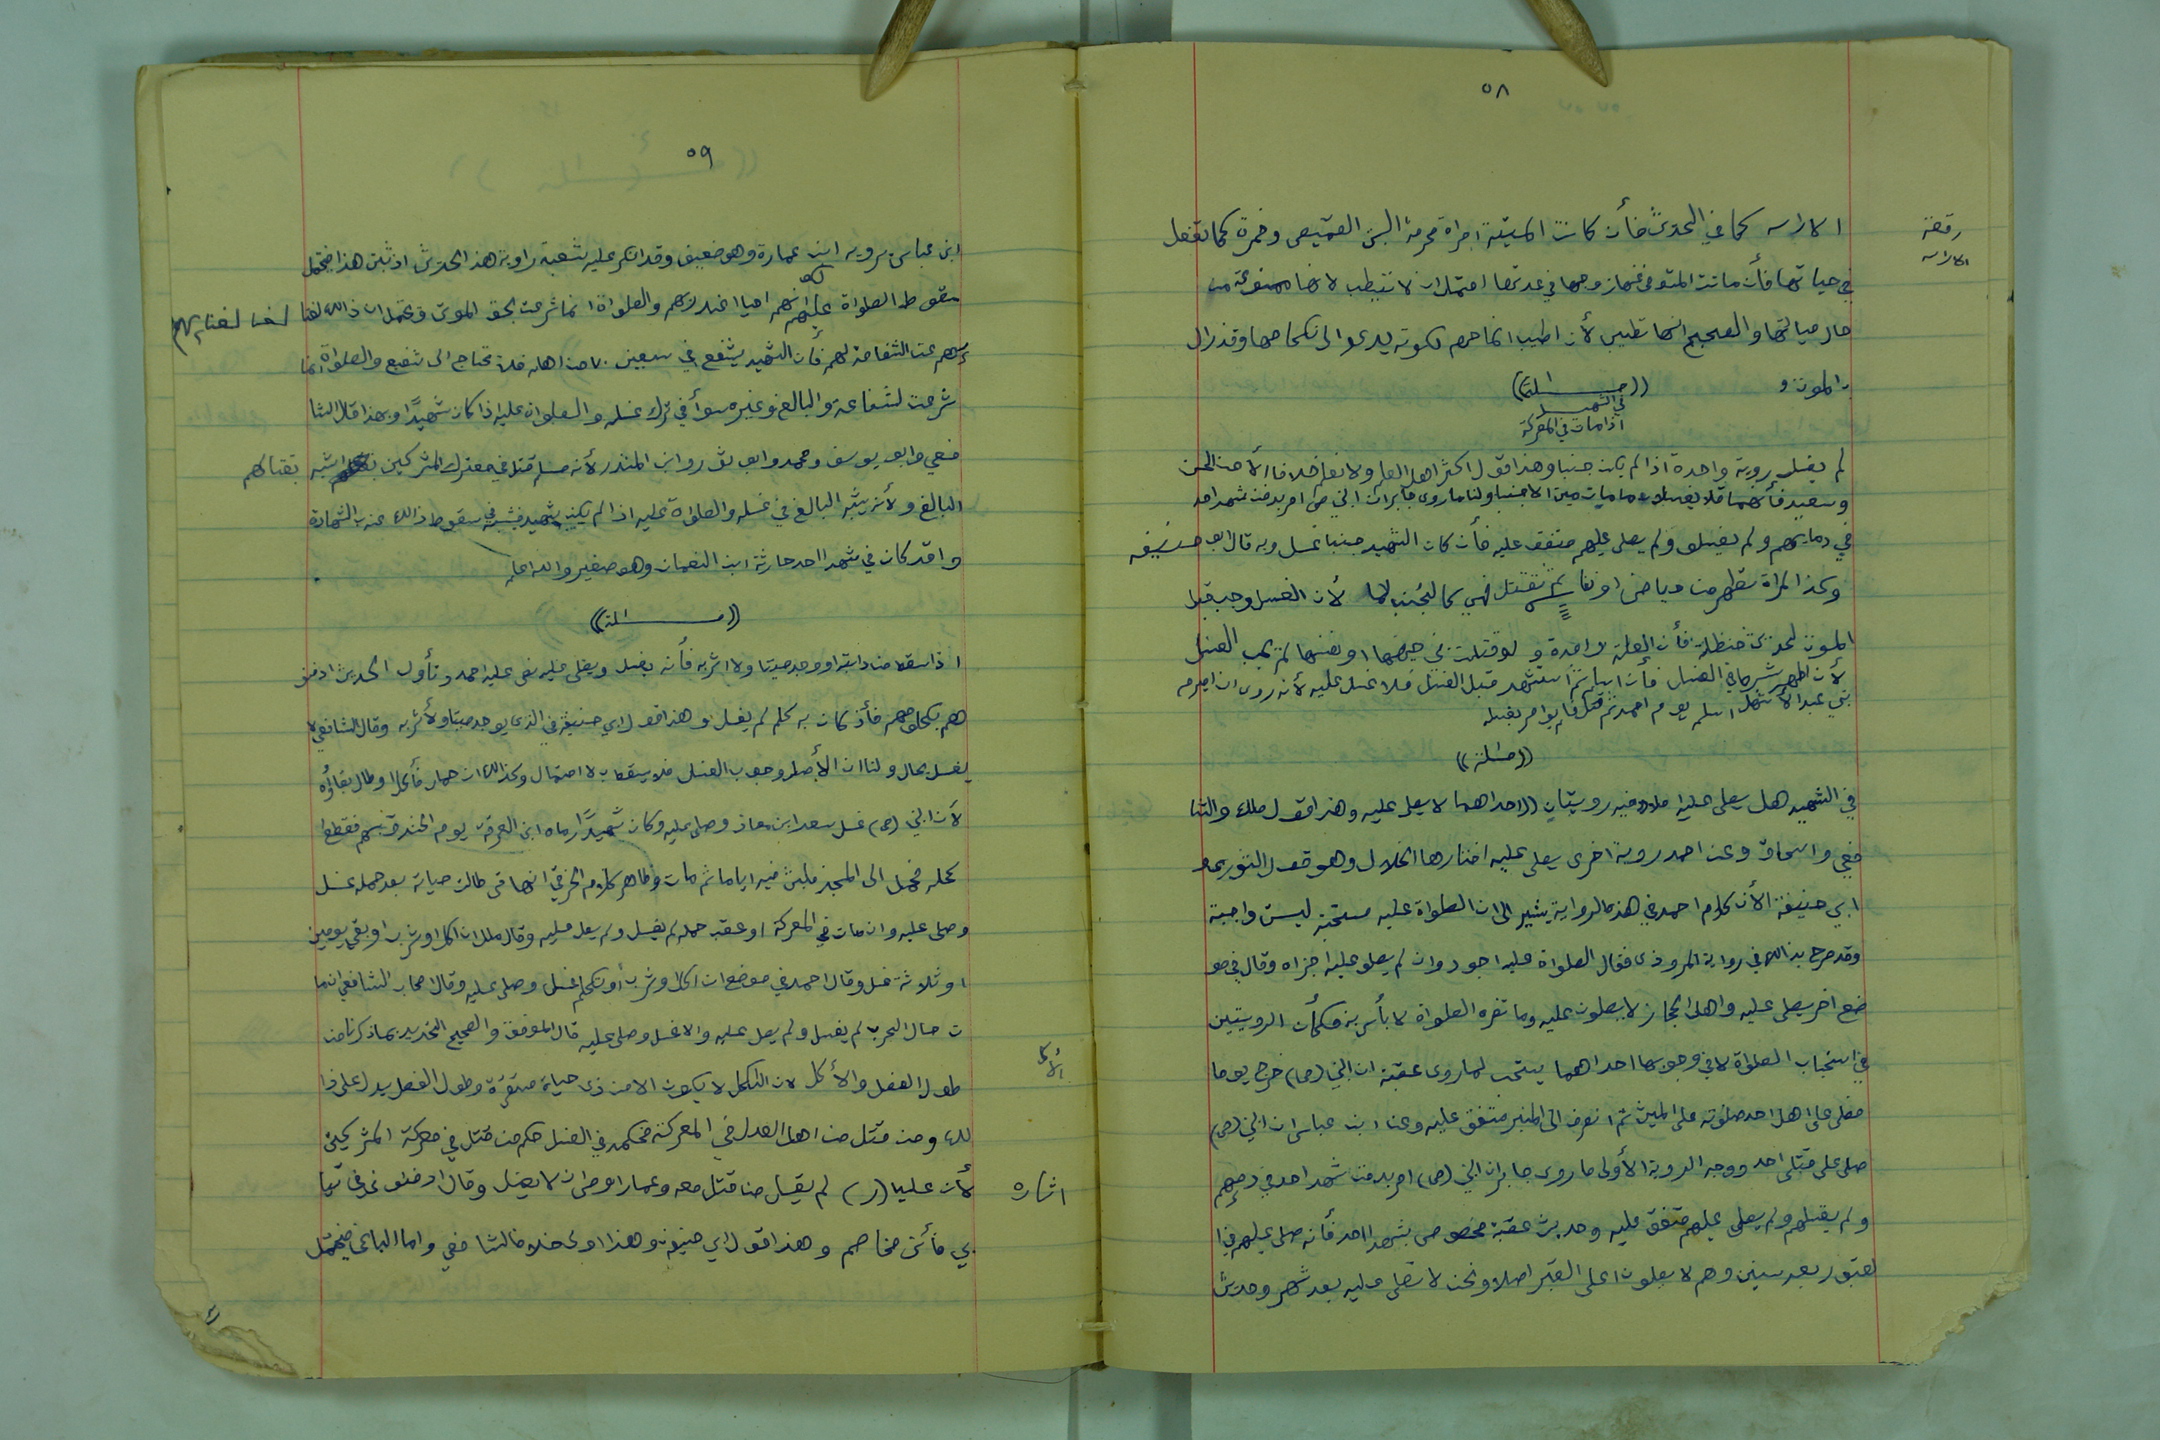 ٥٨
الا راسه كما في الحديث فأن كانت الميتة امراة محرمة البس القميص وخمرة كما تفعل
في حياتها فأن ماتت المتوفى عنها زوجها في عدتها احتمل ان لا تطيب لانها ممنوعة من
حال حياتها والصحيح انها تطيب لأن اطيب انما حرم لكونه يدعوا الى نكاحها وقد زال
بالموت و
((مسئلة))
في الشهيد
اذا مات في المعركة
لم يغسل روية واحدة اذا لم يكن جنبا وهذا قول اكثر اهل العلم ولا نعلم خلافا الأ من الحسن
وسعيد فأنهما قالا يغسل ما مات ميت الا جنبا ولنا ما روى جابر ان النبي ص امر بدفن شهدا احد
في دمائهم ولم يغسلو ولم يصلى عليهم متفق عليه فأن كان الشهيد جنبا غسل وبه قال ابو حنيفه
وكذا المراة تطهر من حياض او نفاس ثم تقتل فهي كالجنب لأن الغسل وجب قبل
الموت لحديث حنظلة فأن العلة واحدة و لو قتلت في حيضها او نفسها لم يجب الغسل
لأن الطهر شرط في الغسل فأن اسلم ثم استشهد قبل الغسل فلا غسل عليه لأنه روى ان اصرم
بني عبد الأشهل اسلم يوم احد ثم قتل فلم يوامر بغسله
((مسئلة))
في الشهيد هل يصلى عليه ام لا فيه رويتان ((احداهما لا يصلى عليه وهذا قول ملك والشا
فعي واسحاق وعن احمد روية اخرى يصلى عليه اختارها الخلال وهو قول الثوري و
ابي حنيفة الأ ان كلام احمد في هذه الرواية يشير الى ان الصلواة عليه مستحبة ليست واجبة
وقد صرح بذالك في رواية المروذى فقال الصلواة عليه اجود وان لم يصلو عليه اجزاه وقال في مو
ضع اخر يصلى عليه واهل الحجاز لا يصلون عليه وما تضره الصلواة لا بأس به فكأن الرويتين
في استحباب الصلواة لا في وجوبها احداهما يستحب لما روى عقبة ان النبي (ص) خرج يوما
فصلى على اهل احد صلوته على الميت ثم انصرف الى المنبر متفق عليه وعن ابن عباس ان النبي (ص)
صلى على قتلى احد ووجه الروية الأولى ما روى جابر ان النبي (ص) امر بدفن شهدا احد في دمهم
ولم يغسلهم ولم يصلى عليهم متفق عليه وحديث عقبة مخصوص بشهدا احد فأنه صلى عليهم في ا
لقبور بعد سنين وهم لا يصلون على القبر اصلا ونحن لا نصلى عليه بعد شهر وحديث
الاراسه
٥٩
ابن عباس يرويه ابن عمارة وهو ضعيف وقد انكر عليه شعبة راوية هذا الحديث اذ ثبت هذا فيحتمل
سقوط الصلواة عليهم لكونهم احيا عند ربهم والصلواة انما شرعت بحق الموتى ويحتمل ان ذالك لغنا
ئهم عن الشفاعة لهم فأن الشهيد يشفع في سبعين ٧٠ من اهله فلا تحتاج الى شفيع والصلواة انما
شرعت لشفاعة والبالغ وغيره سوأ في ترك غسله والصلواة عليه اذا كان شهيدًا وبهذا قال الشا
فعي وابو يوسف ومحمد وابو ثور وابن المنذر لأنه مسلم قتل في معترك المشركين اشبه
بقتالهم
البالغ ولأنه يشبه البالغ في غسله والصلواة عليه اذا لم يكن شهيد فيشبه في سقوط ذالك عنه بالشهادة
واقد كان في شهدا احد حارثة ابن النعمان وهو صغير والله اعلم
((مسئلة))
اذا سقط من دابته او وجد ميتا ولا اثر به فأنه يغسل ويصلى عليه نص عليه احمد وتأول الحديث ادفنو
هم بكلومهم فأذ كان به كلم لم يغسل وهذا قول ابي حنيفة في الذي يوجد ميتا ولأثر به وقال الشافعي لا
يغسل بحال ولنا ان الأصل وجوب الغسل فلا يسقط بلا احتمال وكذالك ان حمل فأكل او طال بقاؤه
لأن النبي (ص) غسل سعد ابن معاذ وصلى عليه وكان شهيدًا رماه ابن العرقة يوم الخندق بسهم فقطع ا
كحله فحمل الى المسجد فلبث فيه اياما ثم مات وظاهر كلام الخرقي انها متى طالت حياته بعد حمله غسل
وصلى عليه وان مات في المعركة او عقب حمله لم يغسل ولم يصل عليه وقال ملك ان اكل او شرب او بقي يومين
او ثلاثة غسل وقال احمد في موضع ان اكل او شرب أو تكلم غسل وصلى عليه وقال اصحاب الشافعي ان ما
ت حال الحرب لم يغسل ولم يصل عليه والا غسل وصلى عليه قال الموفق والصحيح التحديد بما ذكرنا من
طول الفصل والأكل لان الأكل لا يكون الا من ذى حياة مستقرة وطول الفصل يدل على ذا
الأكل
لك ومن قتل من اهل العدل في المعركة فحكمه في الغسل حكم من قتل في معركة المشركين
لأن عليا (ر) لم يغسل من قتل معه وعمار اوصى ان لا يغسل وقال ادفنونى في ثيا
بي فأني مخاصم وهذا قول ابي حنيفة وهذا اولى خلافا لشافعي واما الباغي فيحتمل